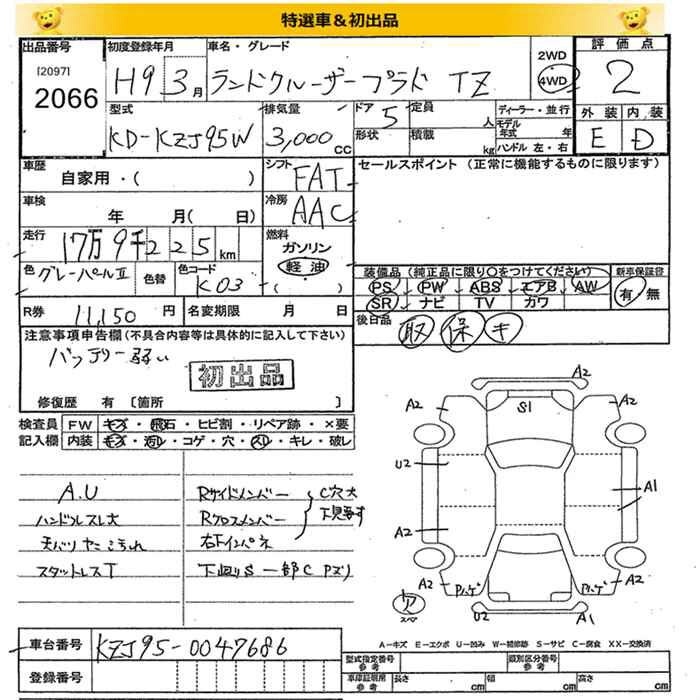 特選車＆初出品
出品番号
[2097]
2066
初度登録年月
H9 3月
車名・グレード
ランドクルーザープラド TZ
2WD
4WD
評価点
2
外装 内装
E D
型式
KD-KZJ95W
排気量
3,000
CC
ドア
5
形状
定員
人
積載
kg
ディーラー・並行
モデル年式 年
ハンドル 左・右
車歴
自家用・( )
シフト
FAT
セールスポイント (正常に機能するものに限ります)
車検
年 月( 日)
冷房
AAC
走行
17万9千225 km
燃料
ガソリン
軽油
( )
色
グレーパールII
色替
色コード
K03
装備品 (純正品に限り○をつけてください)
新車保証書
PS PW ABS エアB AW
SR ナビ TV カワ
有・無
R券
11,150 円
名変期限 月 日
後日品
取 保 キ
注意事項申告欄 (不具合内容等は具体的に記入して下さい)
バッテリー弱い
初出品
修復歴 有 [箇所 ]
検査員記入欄
FW キズ・飛石・ヒビ割・リペア跡・×要
内装 キズ・汚レ・コゲ・穴・スレ・キレ・破レ
A.U
ハンドルスレ大
天バリヤニこちれ
スタットレスT
Rサイドメンバー
Rクロスメンバー
C穴大
下見要す
右下インパネ
下廻りS 一部C Pズリ
A2
A2
S1
A2
U2
A1
A2
A2
Pハゲ
Pハゲ
A2
U2
A1
ア
スペア
A-キズ E-エクボ U-凹み W-補修跡 S-サビ C-腐食 XX-交換済
車台番号
KZJ95-0047686
登録番号
型式指定番号
参考
類別区分番号
参考
車庫証明用
参考
長さ cm
幅 cm
高さ cm